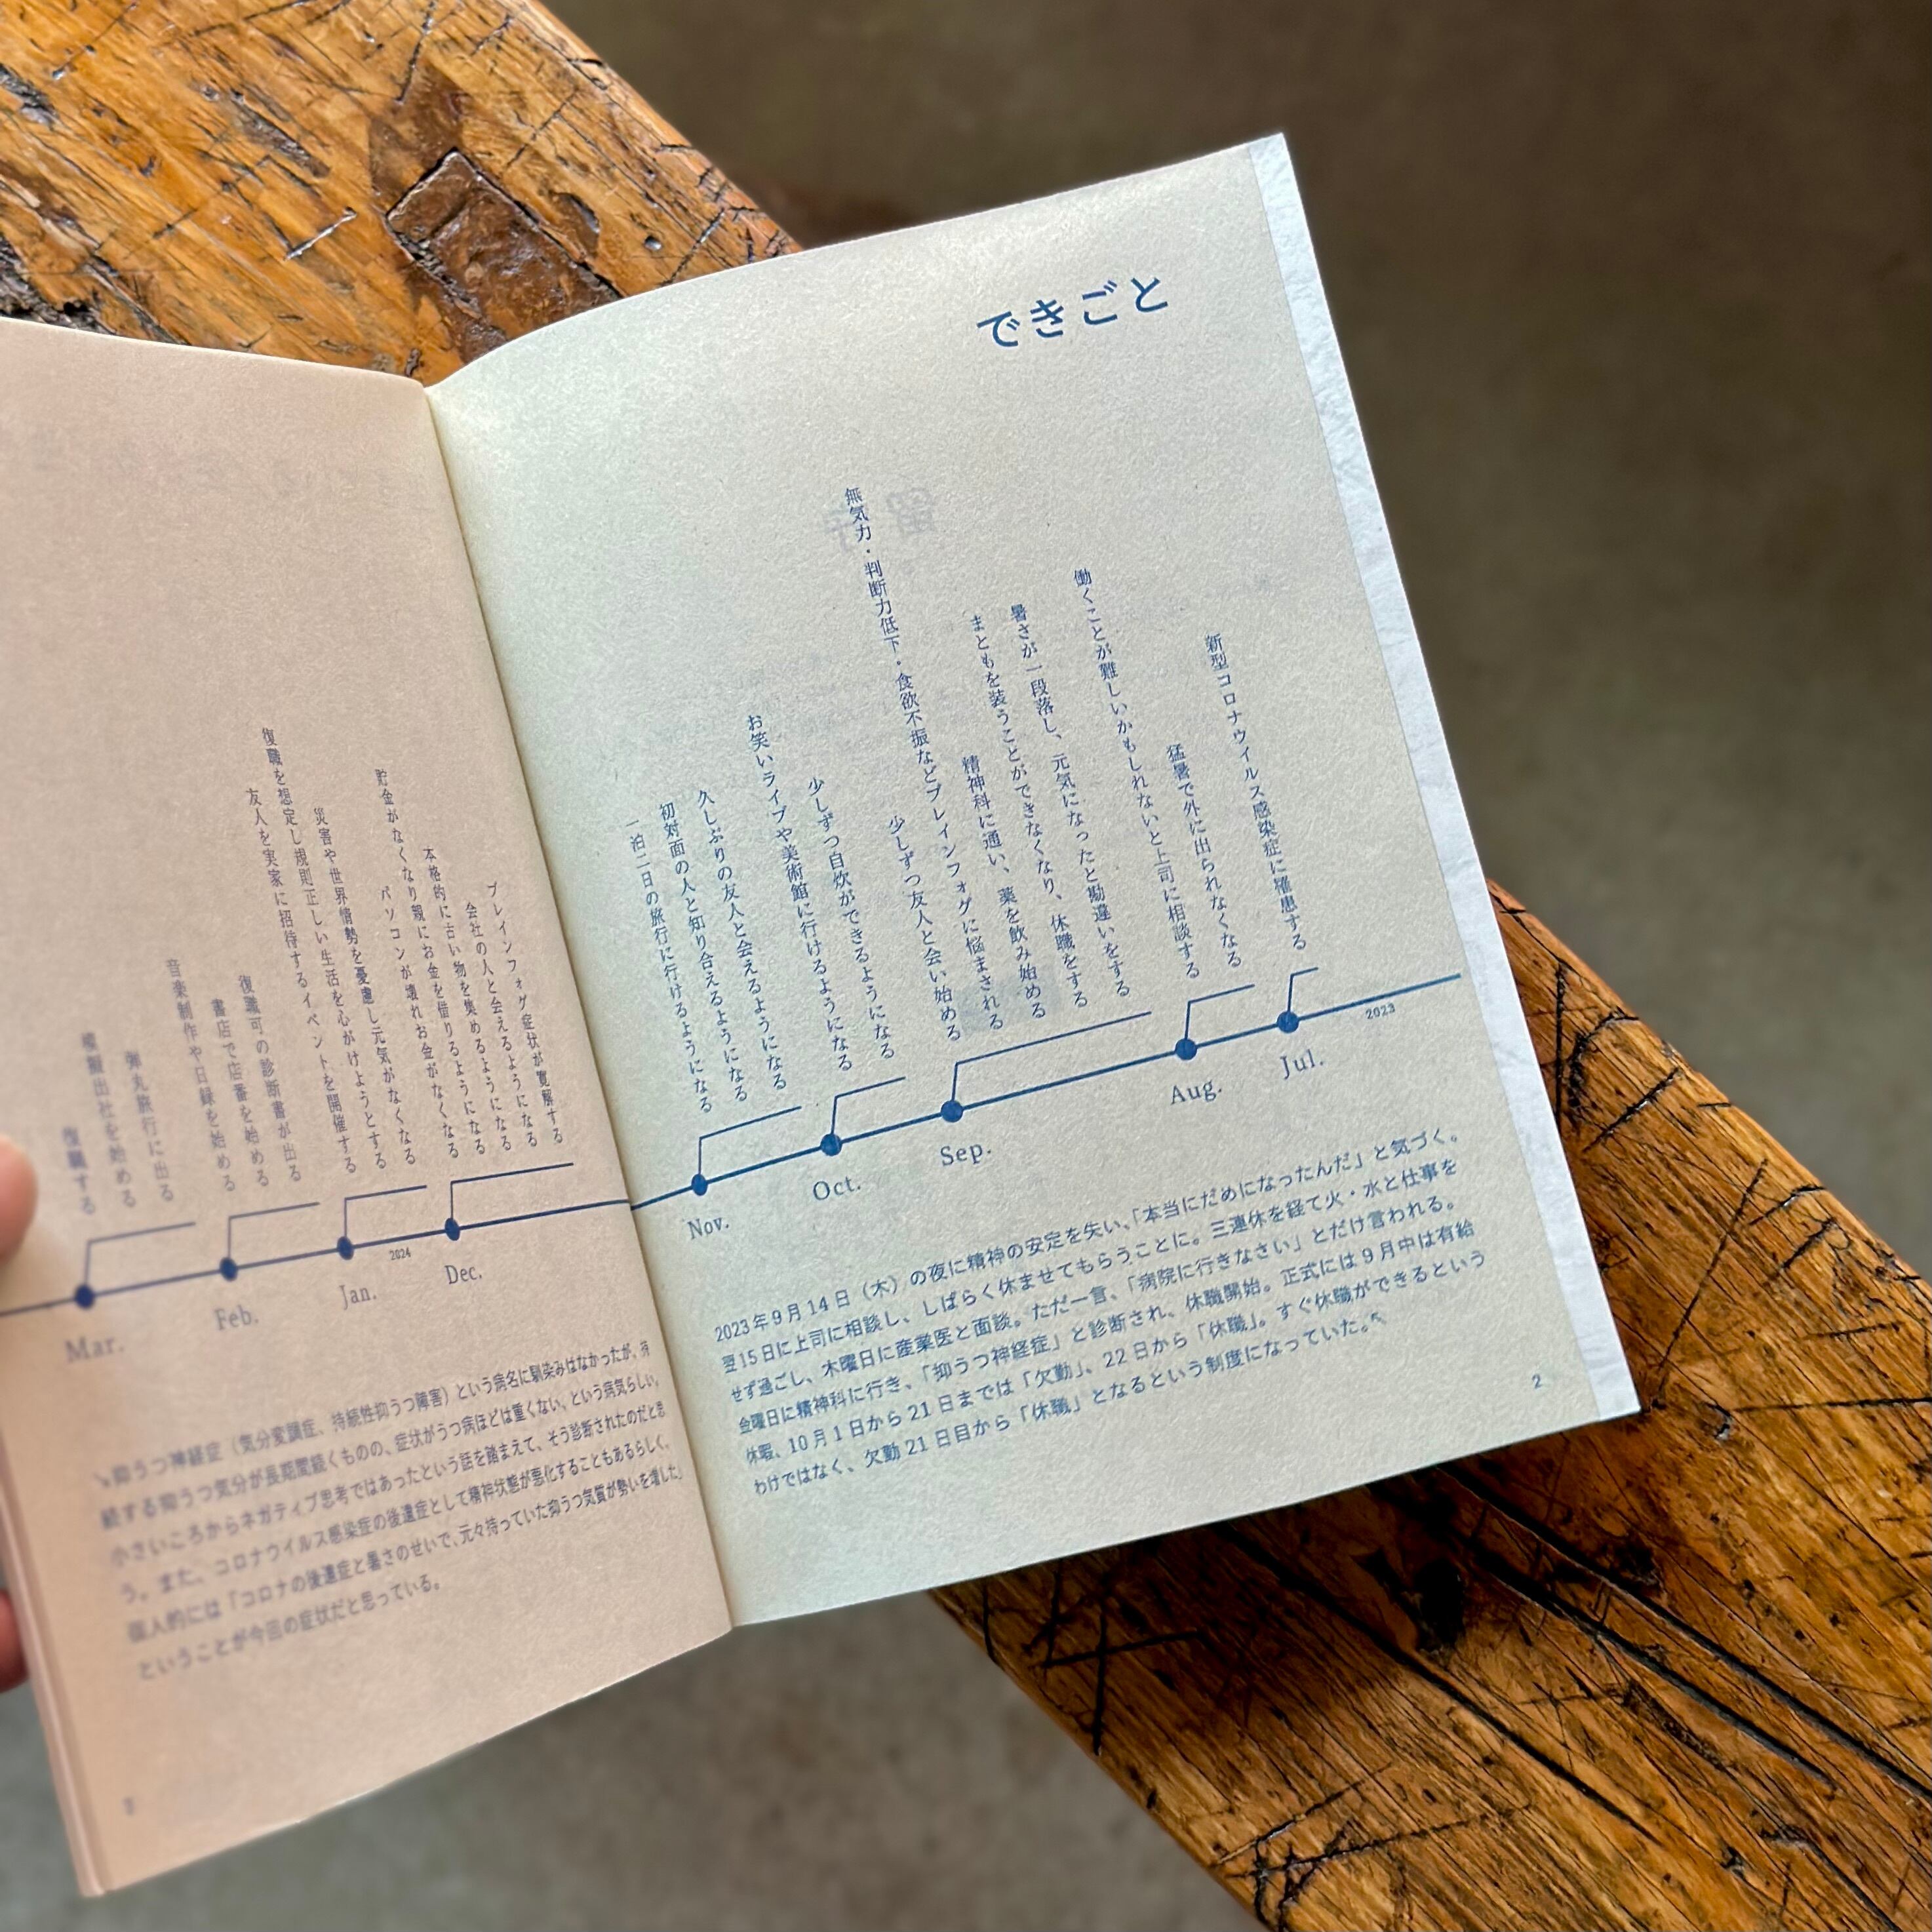 できごと
2023
新型コロナウイルス感染症に罹患する
Jul.
猛暑で外に出られなくなる
働くことが難しいかもしれないと上司に相談する
Aug.
暑さが一段落し、元気になったと勘違いをする
まともを装うことができなくなり、休職をする
精神科に通い、薬を飲み始める
無気力・判断力低下・食欲不振などブレインフォグに悩まされる
少しずつ友人と会い始める
Sep.
少しずつ自炊ができるようになる
お笑いライブや美術館に行けるようになる
Oct.
久しぶりの友人と会えるようになる
初対面の人と知り合えるようになる
一泊二日の旅行に行けるようになる
Nov.
2023年9月14日（木）の夜に精神の安定を失い、「本当にだめになったんだ」と気づく。
翌15日に上司に相談し、しばらく休ませてもらうことに。三連休を経て火・水と仕事を
せず過ごし、木曜日に産業医と面談。ただ一言、「病院に行きなさい」とだけ言われる。
金曜日に精神科に行き、「抑うつ神経症」と診断され、休職開始。正式には9月中は有給
休暇、10月1日から21日までは「欠勤」、22日から「休職」。すぐ休職ができるという
わけではなく、欠勤21日目から「休職」となるという制度になっていた。↖
2
ブレインフォグ症状が寛解する
会社の人と会えるようになる
本格的に古い物を集めるようになる
パソコンが壊れお金がなくなる
Dec.
貯金がなくなり親にお金を借りるようになる
災害や世界情勢を憂慮し元気がなくなる
復職を想定し規則正しい生活を心がけようとする
友人を実家に招待するイベントを開催する
2024
Jan.
復職可の診断書が出る
書店で店番を始める
音楽制作や日録を始める
Feb.
弾丸旅行に出る
模擬出社を始める
復職する
Mar.
↘抑うつ神経症（気分変調症、持続性抑うつ障害）という病名に馴染みはなかったが、持
続する抑うつ気分が長期間続くものの、症状がうつ病ほどは重くない、という病気らしい。
小さいころからネガティブ思考ではあったという話を踏まえて、そう診断されたのだと思
う。また、コロナウイルス感染症の後遺症として精神状態が悪化することもあるらしく、
個人的には「コロナの後遺症と暑さのせいで、元々持っていた抑うつ気質が勢いを増した」
ということが今回の症状だと思っている。
3